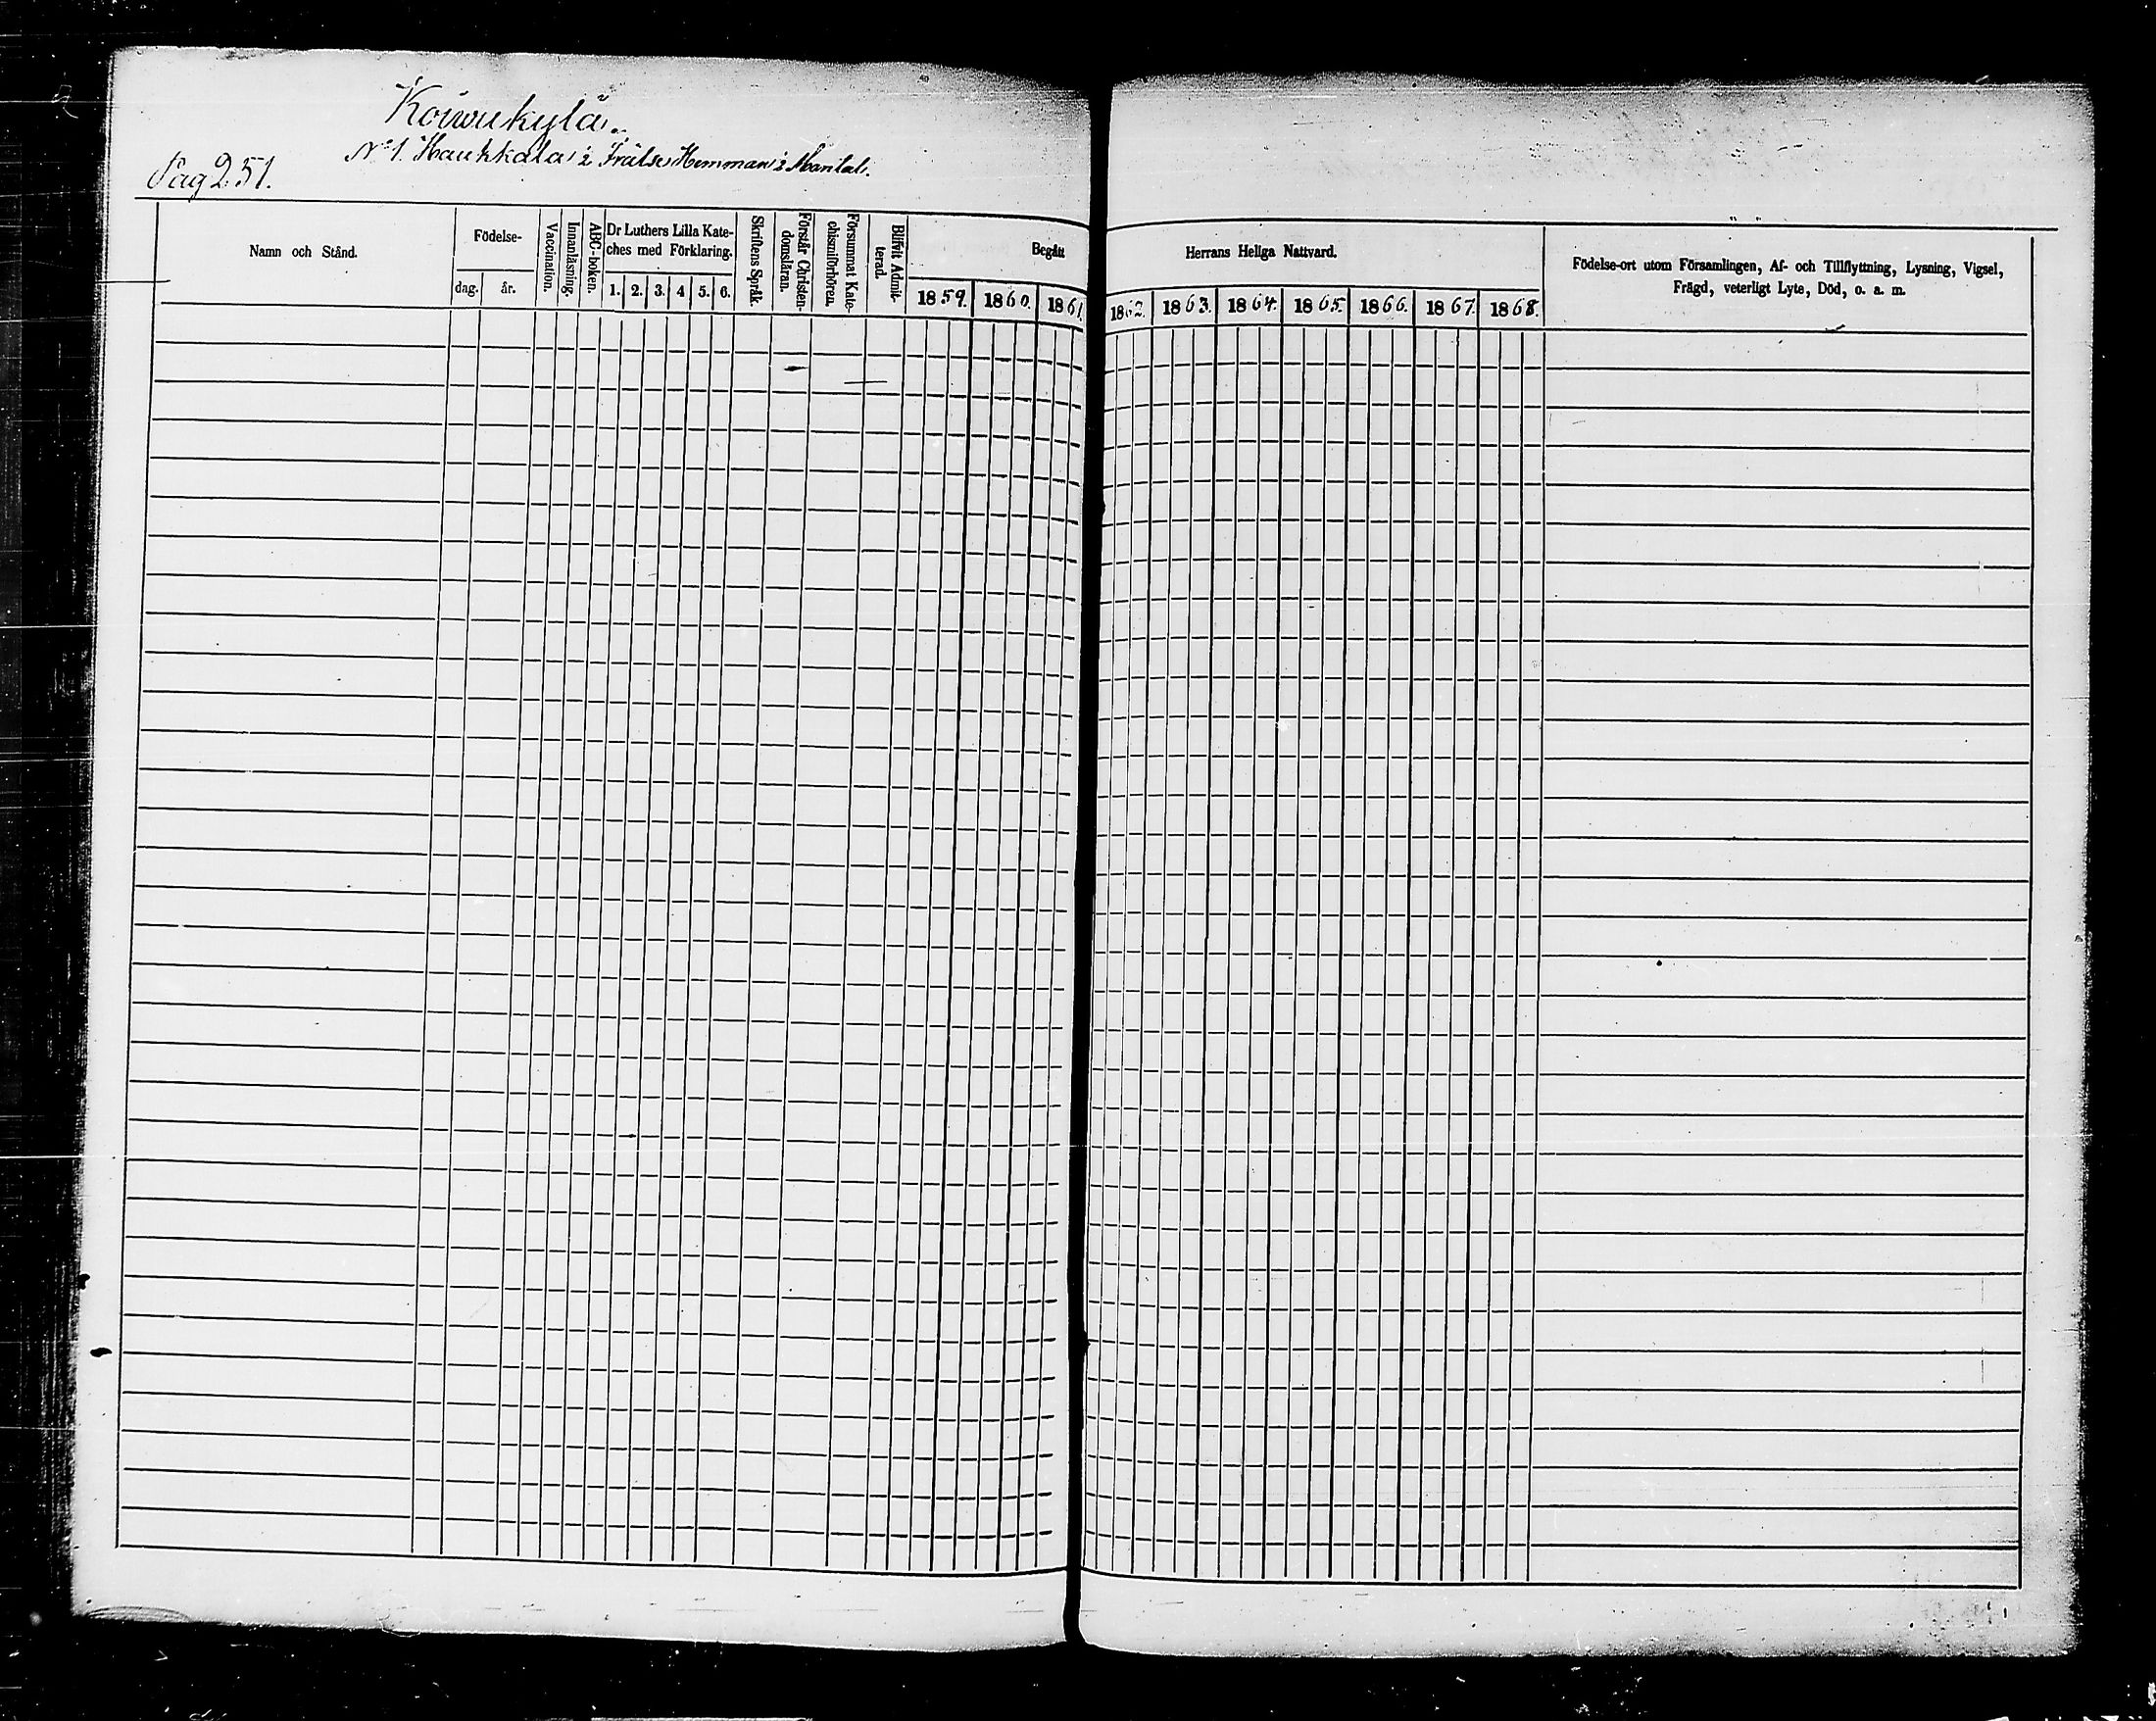 Koiwukylä.
No 1. Haukkala ½ Frälse Hemman ½ Mantal.
Pag 251.
Namn och Stånd.
Födelse-
dag. år.
Vaccination.
Innanläsning.
ABC-boken.
Dr Luthers Lilla Kate-
ches med Förklaring.
1. 2. 3. 4 5. 6.
Skriftens Språk.
Förstår Christen-
domsläran.
Försummat Kate-
chismiförhören.
Blifvit Admit-
terad.
Begått Herrans Heliga Nattvard.
1859. 1860. 1861. 1862. 1863. 1864. 1865. 1866. 1867. 1868.
Födelse-ort utom Församlingen, Af- och Tillflyttning, Lysning, Vigsel,
Frägd, veterligt Lyte, Död, o. a. m.